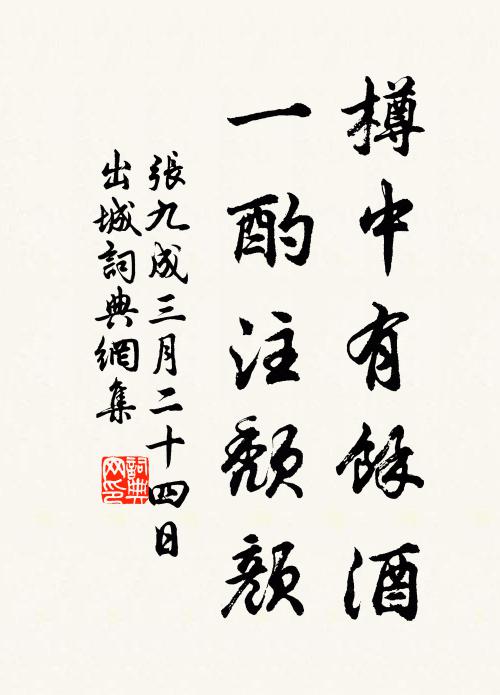 樽中有餘酒
一酌注頹顏
張九成三月二十四日
出城詞典網集
詞典
网印